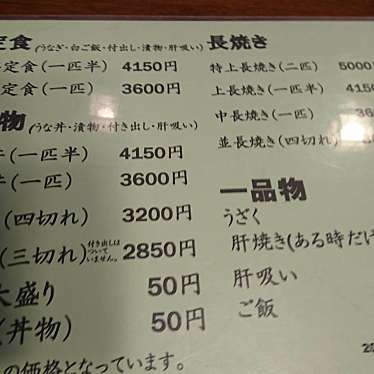 定食(うなぎ・白ご飯・付出し・漬物・肝吸い)
定食(一匹半) 4150円
定食(一匹) 3600円
物(うな丼・漬物・付き出し・肝吸い)
(一匹半) 4150円
(一匹) 3600円
(四切れ) 3200円
(三切れ) 付き出しはついていません。 2850円
大盛り 50円
(丼物) 50円
の価格となっています。
長焼き
特上長焼き(二匹) 5000
上長焼き(一匹半) 4150
中長焼き(一匹) 36
並長焼き(四切れ)
一品物
うざく
肝焼き(ある時だけ
肝吸い
ご飯